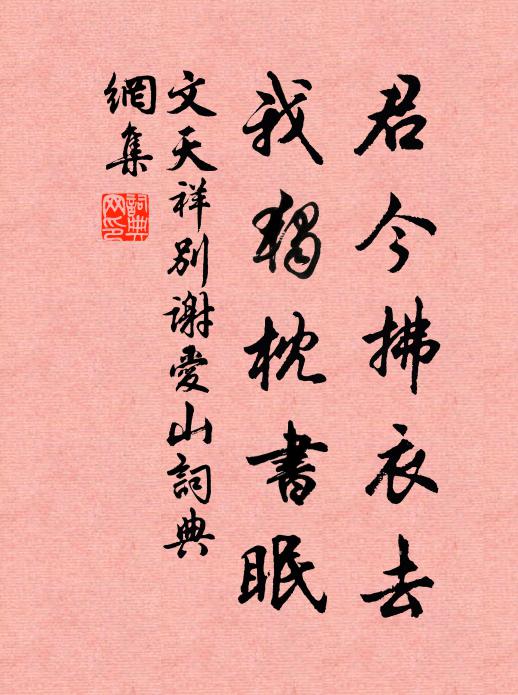 君今拂衣去
我獨枕書眠
文天祥別謝愛山詞典
網集
詞典
网印